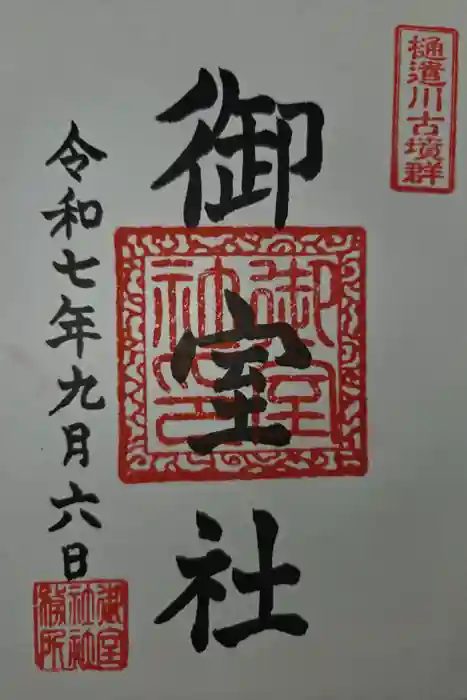 樋遣川古墳群
御室社
御室社印
令和七年九月六日
御室社社務所